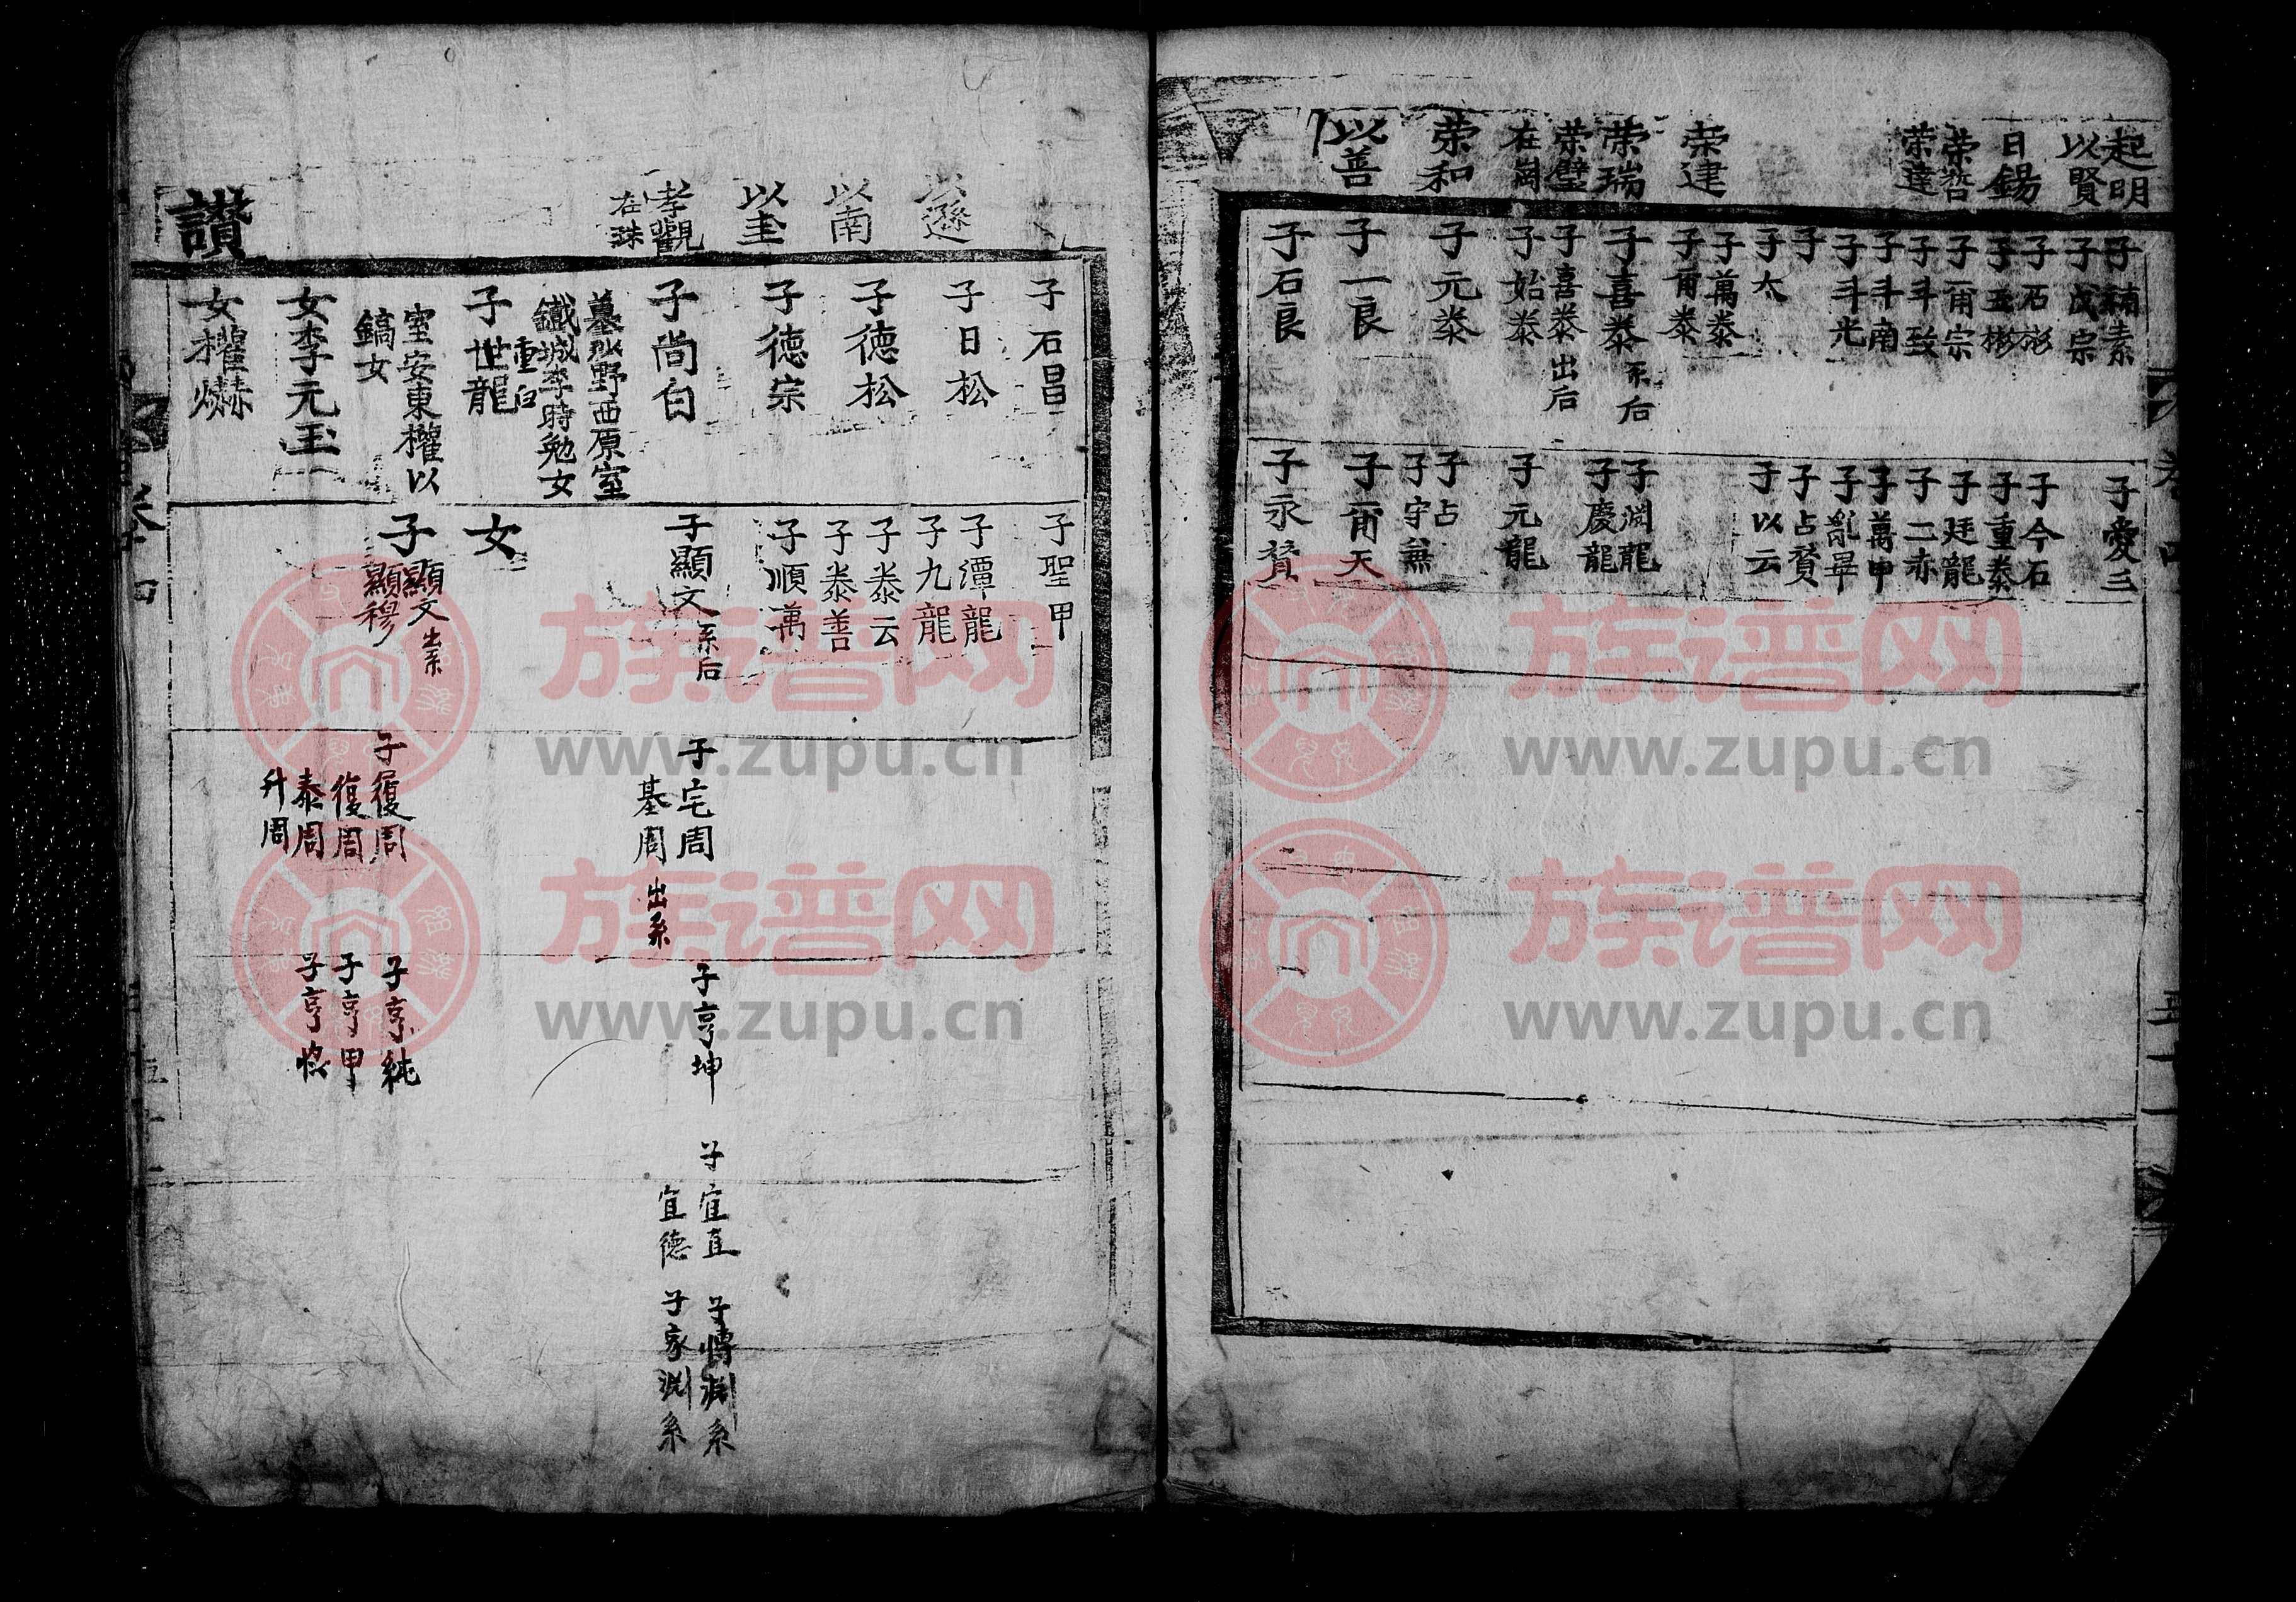 起明
以賢
日錫
荣哲
荣達
荣建
荣瑞
荣璧
在崗
荣和
以善
子補素
子茂宗
子石彬
子五彬
子甫宗
子斗致
子斗南
子斗光
子
子大
子萬泰
子甫泰
子喜泰 系后
子喜泰 出后
子始泰
子元泰
子一良
子石良
子愛三
子今石
子重泰
子廷龍
子二赤
子萬甲
子占贊
子以云
子淵龍
子慶龍
子元龍
子占
子守兼
子甫天
子永贊
卷四
五十一
遜
以南
以奎
孝觀
在洙
讃
子石昌
子日松
子德松
子德宗
子尚白
墓沙野西原室
鐵城李時勉女
子世龍
重白
室安東權以
鎬女
女李元玉
女權爀
子聖甲
子潭龍
子九龍
子泰云
子泰善
子順萬
子顯文 系后
女
子顯文 出系
顯穆
子宅周
基周 出系
子履周
復周
泰周
升周
子亨坤
子亨純
子亨甲
子亨悠
子宜直
宜德
子博淵系
子家淵系
卷四
五十一
族谱网
www.zupu.cn
族谱网
www.zupu.cn
族谱网
www.zupu.cn
族谱网
www.zupu.cn